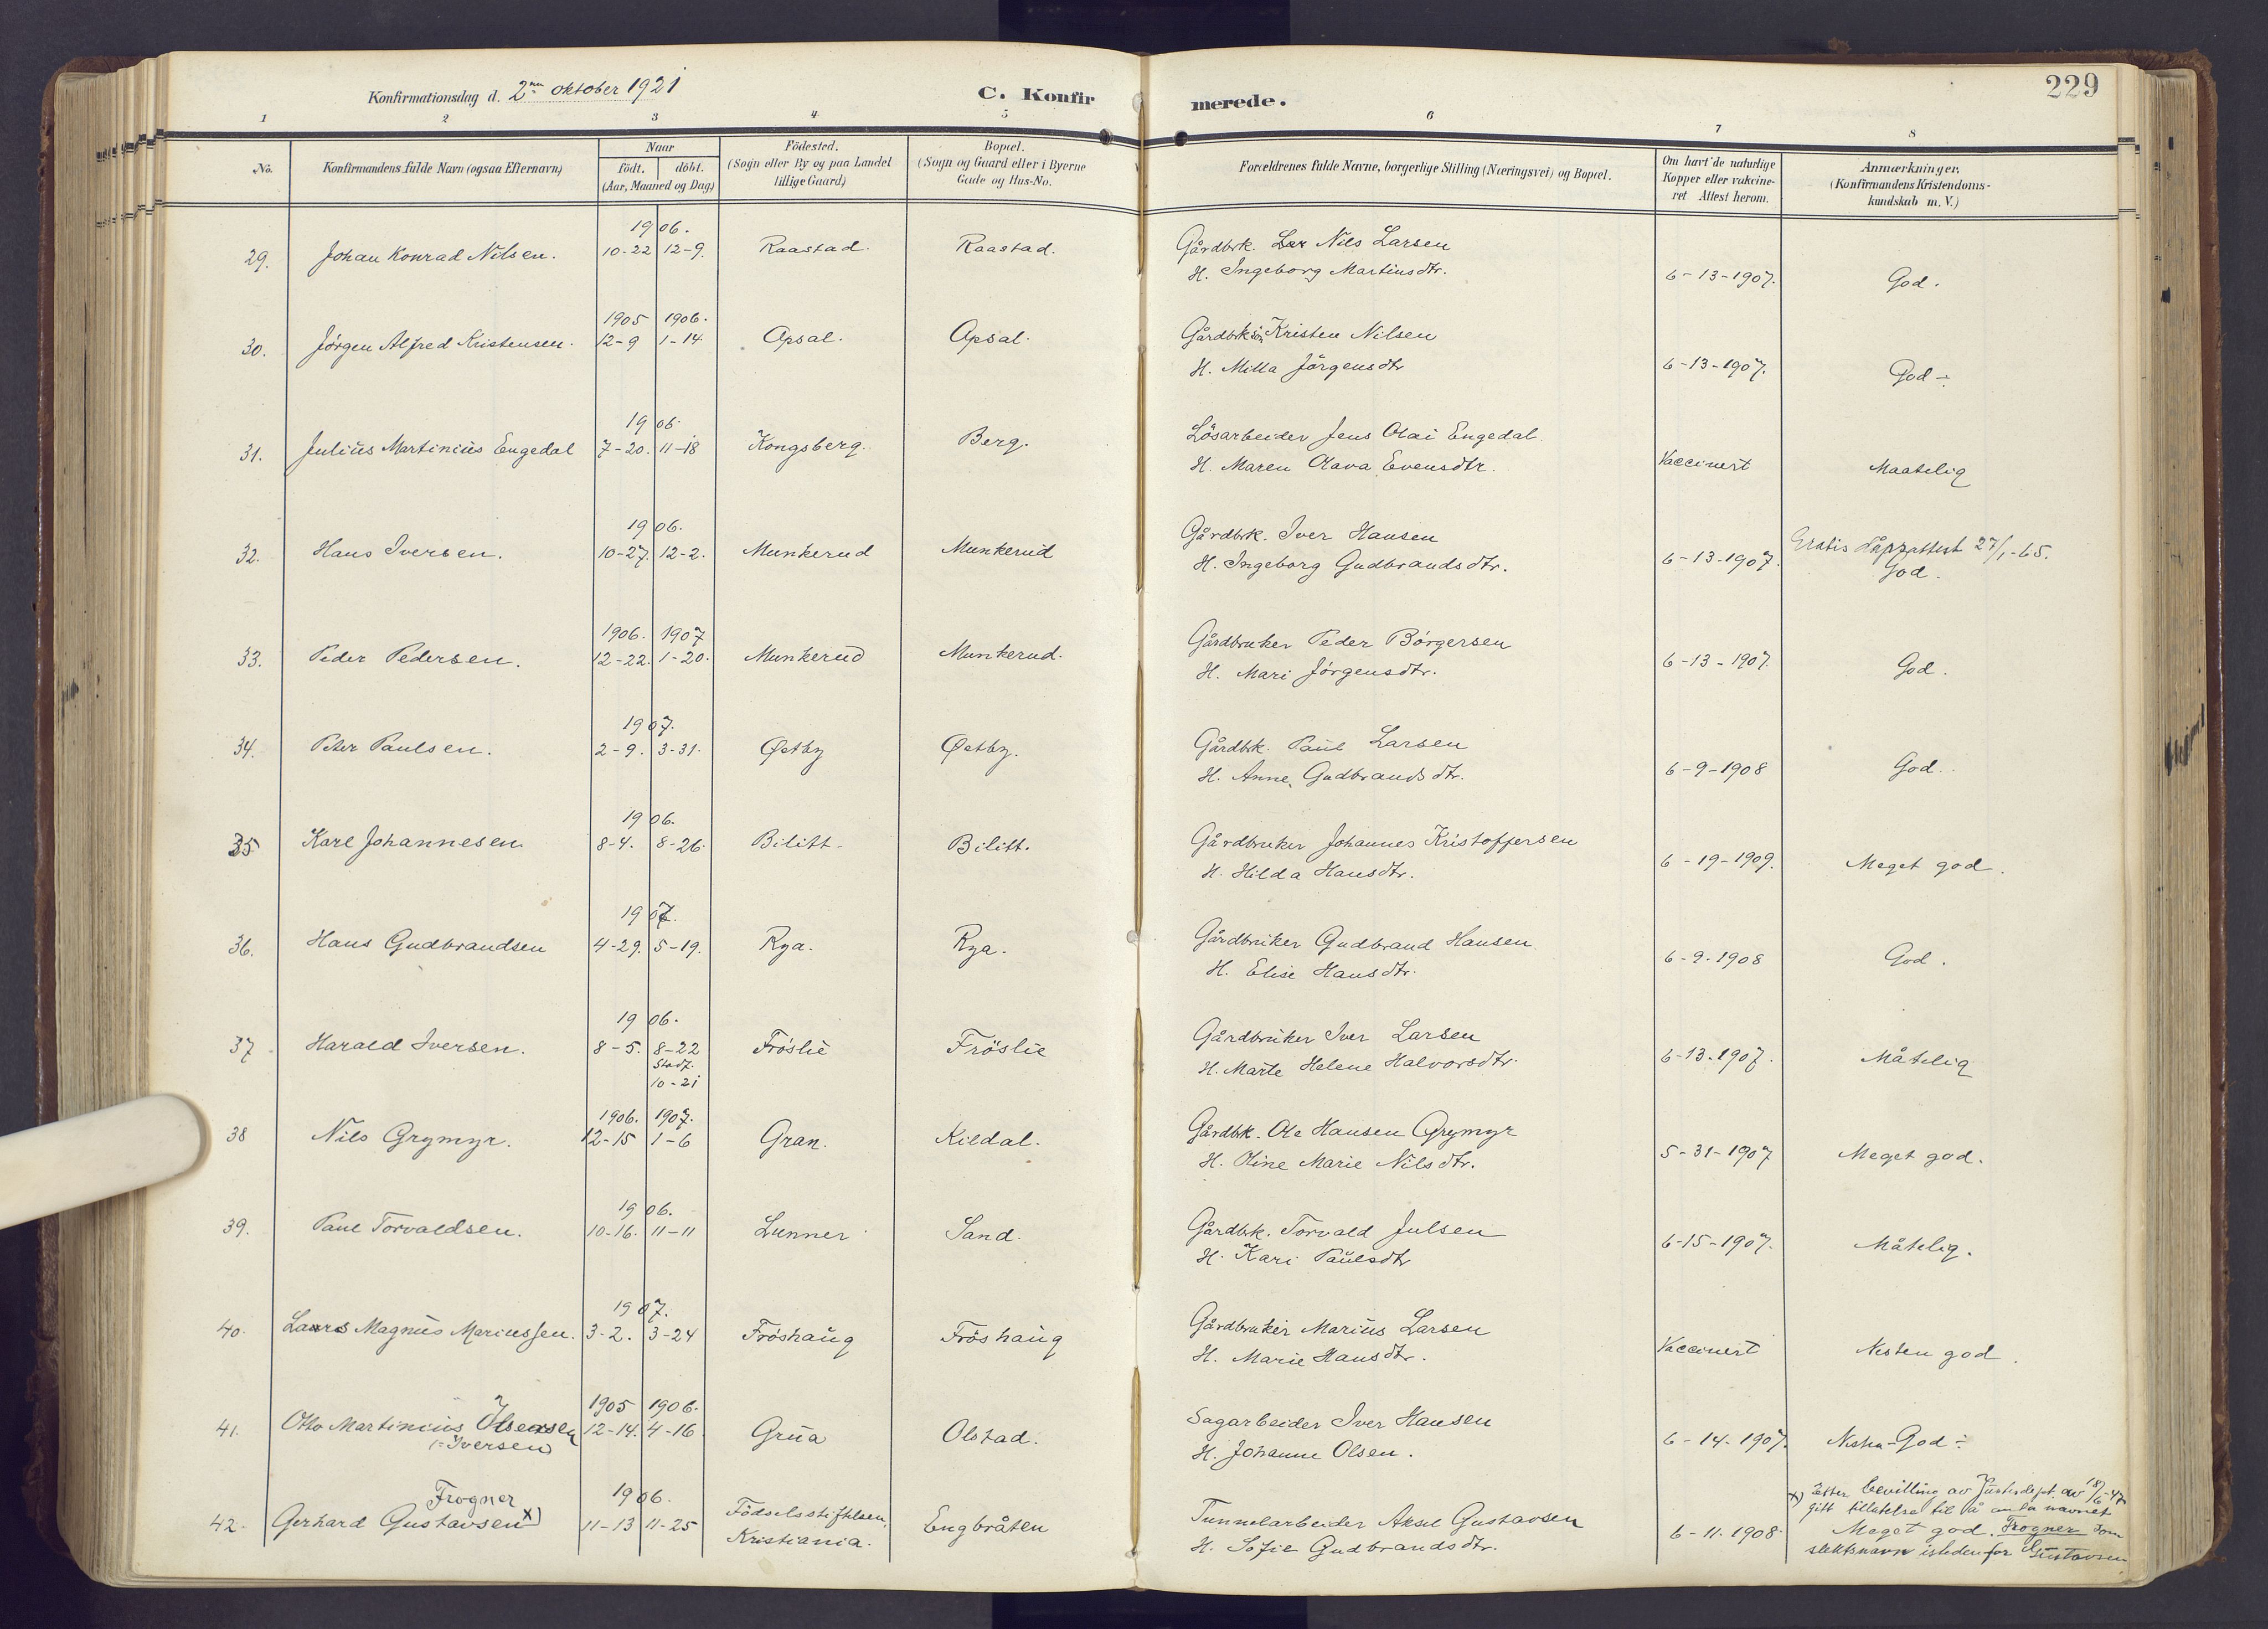 229
Konfirmationsdag d. 2nn oktober 1921
C. Konfirmerede.
1 2 3 4 5 6 7 8
No. | Konfirmandens fulde Navn (ogsaa Efternavn) | Naar födt. döbt. (Aar, Maaned og Dag) | Födested. (Sogn eller By og paa Landet tillige Gaard) | Bopæl. (Sogn og Gaard eller i Byerne Gade og Hus-No. | Forældrenes fulde Navne, borgerlige Stilling (Næringsvei) og Bopæl. | Om havt de naturlige Kopper eller vakcineret Attest herom. | Anmærkninger. (Konfirmandens Kristendomskundskab m. V.)
1906.
29. Johan Konrad Nilsen. 10-22 12-9. Raastad. Raastad. Gårdbrk. Nils Larsen
H. Ingeborg Martinsdtr. 6-13-1907. God.
1905 1906.
30. Jörgen Alfred Kristensen. 12-9 1-14 Apsal. Apsal. Gårdbrksön Kristen Nilsen
H. Milla Jörgensdtr 6-13-1907. God ÷
1906
31. Julius Martinius Engedal 7-20. 11-18 Kongsberg. Berg. Lösarbeider Jens Olai Engedal
H. Maren Olava Evensdtr. Vaccinert Maatelig
1906.
32. Hans Iversen. 10-27. 12-2. Munkerud Munkerud Gårdbrk. Iver Hansen
H. Ingeborg Gudbrandsdtr. 6-13-1907. Gratis dåpsattest 27/1-65.
God.
1906. 1907
33. Peder Pedersen. 12-22. 1-20. Munkerud Munkerud. Gårdbruker Peder Börgersen
H. Mari Jörgensdtr. 6-13-1907. God.
1907.
34. Peter Paulsen. 2-9. 3-31. Østby Østby. Gårdbrk. Paul Larsen
H. Anne Gudbrandsdtr. 6-9-1908 God.
1906.
35 Karl Johannesen 8-4. 8-26. Bilitt. Bilitt. Gårdbruker Johannes Kristoffersen
H. Hilda Hansdtr. 6-19-1909. Meget god.
1907.
36. Hans Gudbrandsen 4-29. 5-19. Rya. Rya. Gårdbruker Gudbrand Hansen.
H. Elise Hansdtr. 6-9-1908 God.
1906.
37 Harald Iversen. 8-5. 8-22 Fröslie Fröslie Gårdbruker Iver Larsen
Stadf.
10-21
H. Marte Helene Halvorsdtr. 6-13-1907. Måtelig
1906. 1907.
38 Nils Grymyr. 12-15 1-6 Gran. Kildal. Gårdbk. Ole Hansen Grymyr
H. Oline Marie Nilsdtr. 5-31-1907 Meget god.
1906.
39. Paul Torvaldsen. 10-16. 11-11 Lunner Sand. Gårdbk. Torvald Julsen
H. Kari Paulsdtr 6-15-1907. Måtelig.
1907.
40. Lars Magnus Mariussen. 3-2. 3-24 Fröshaug Fröshaug Gårdbruker Marius Larsen
H. Marie Hansdtr. Vaccinert Nesten god.
1905 1906.
41. Otto Martinius 12-14. 4-16 Grua Olstad. Sagarbeider Iver Hansen
(=Iversen)
H. Johanne Olsen. 6-14-1907. Nesten God ÷
Frogner 1906.
42. Gerhard Gustavsen x) 11-13 11-25 Födselsstiftelsen, Kristiania. Engbråten Tunnelarbeider Aksel Gustavsen
H. Sofie Gudbrandsdtr. 6-11-1908.
x) Etter bevilling av Justisdept. av 18/6-47
gitt tillatelse til å anta navnet
Meget god. Frogner som
slektsnavn istedenfor Gustavsen